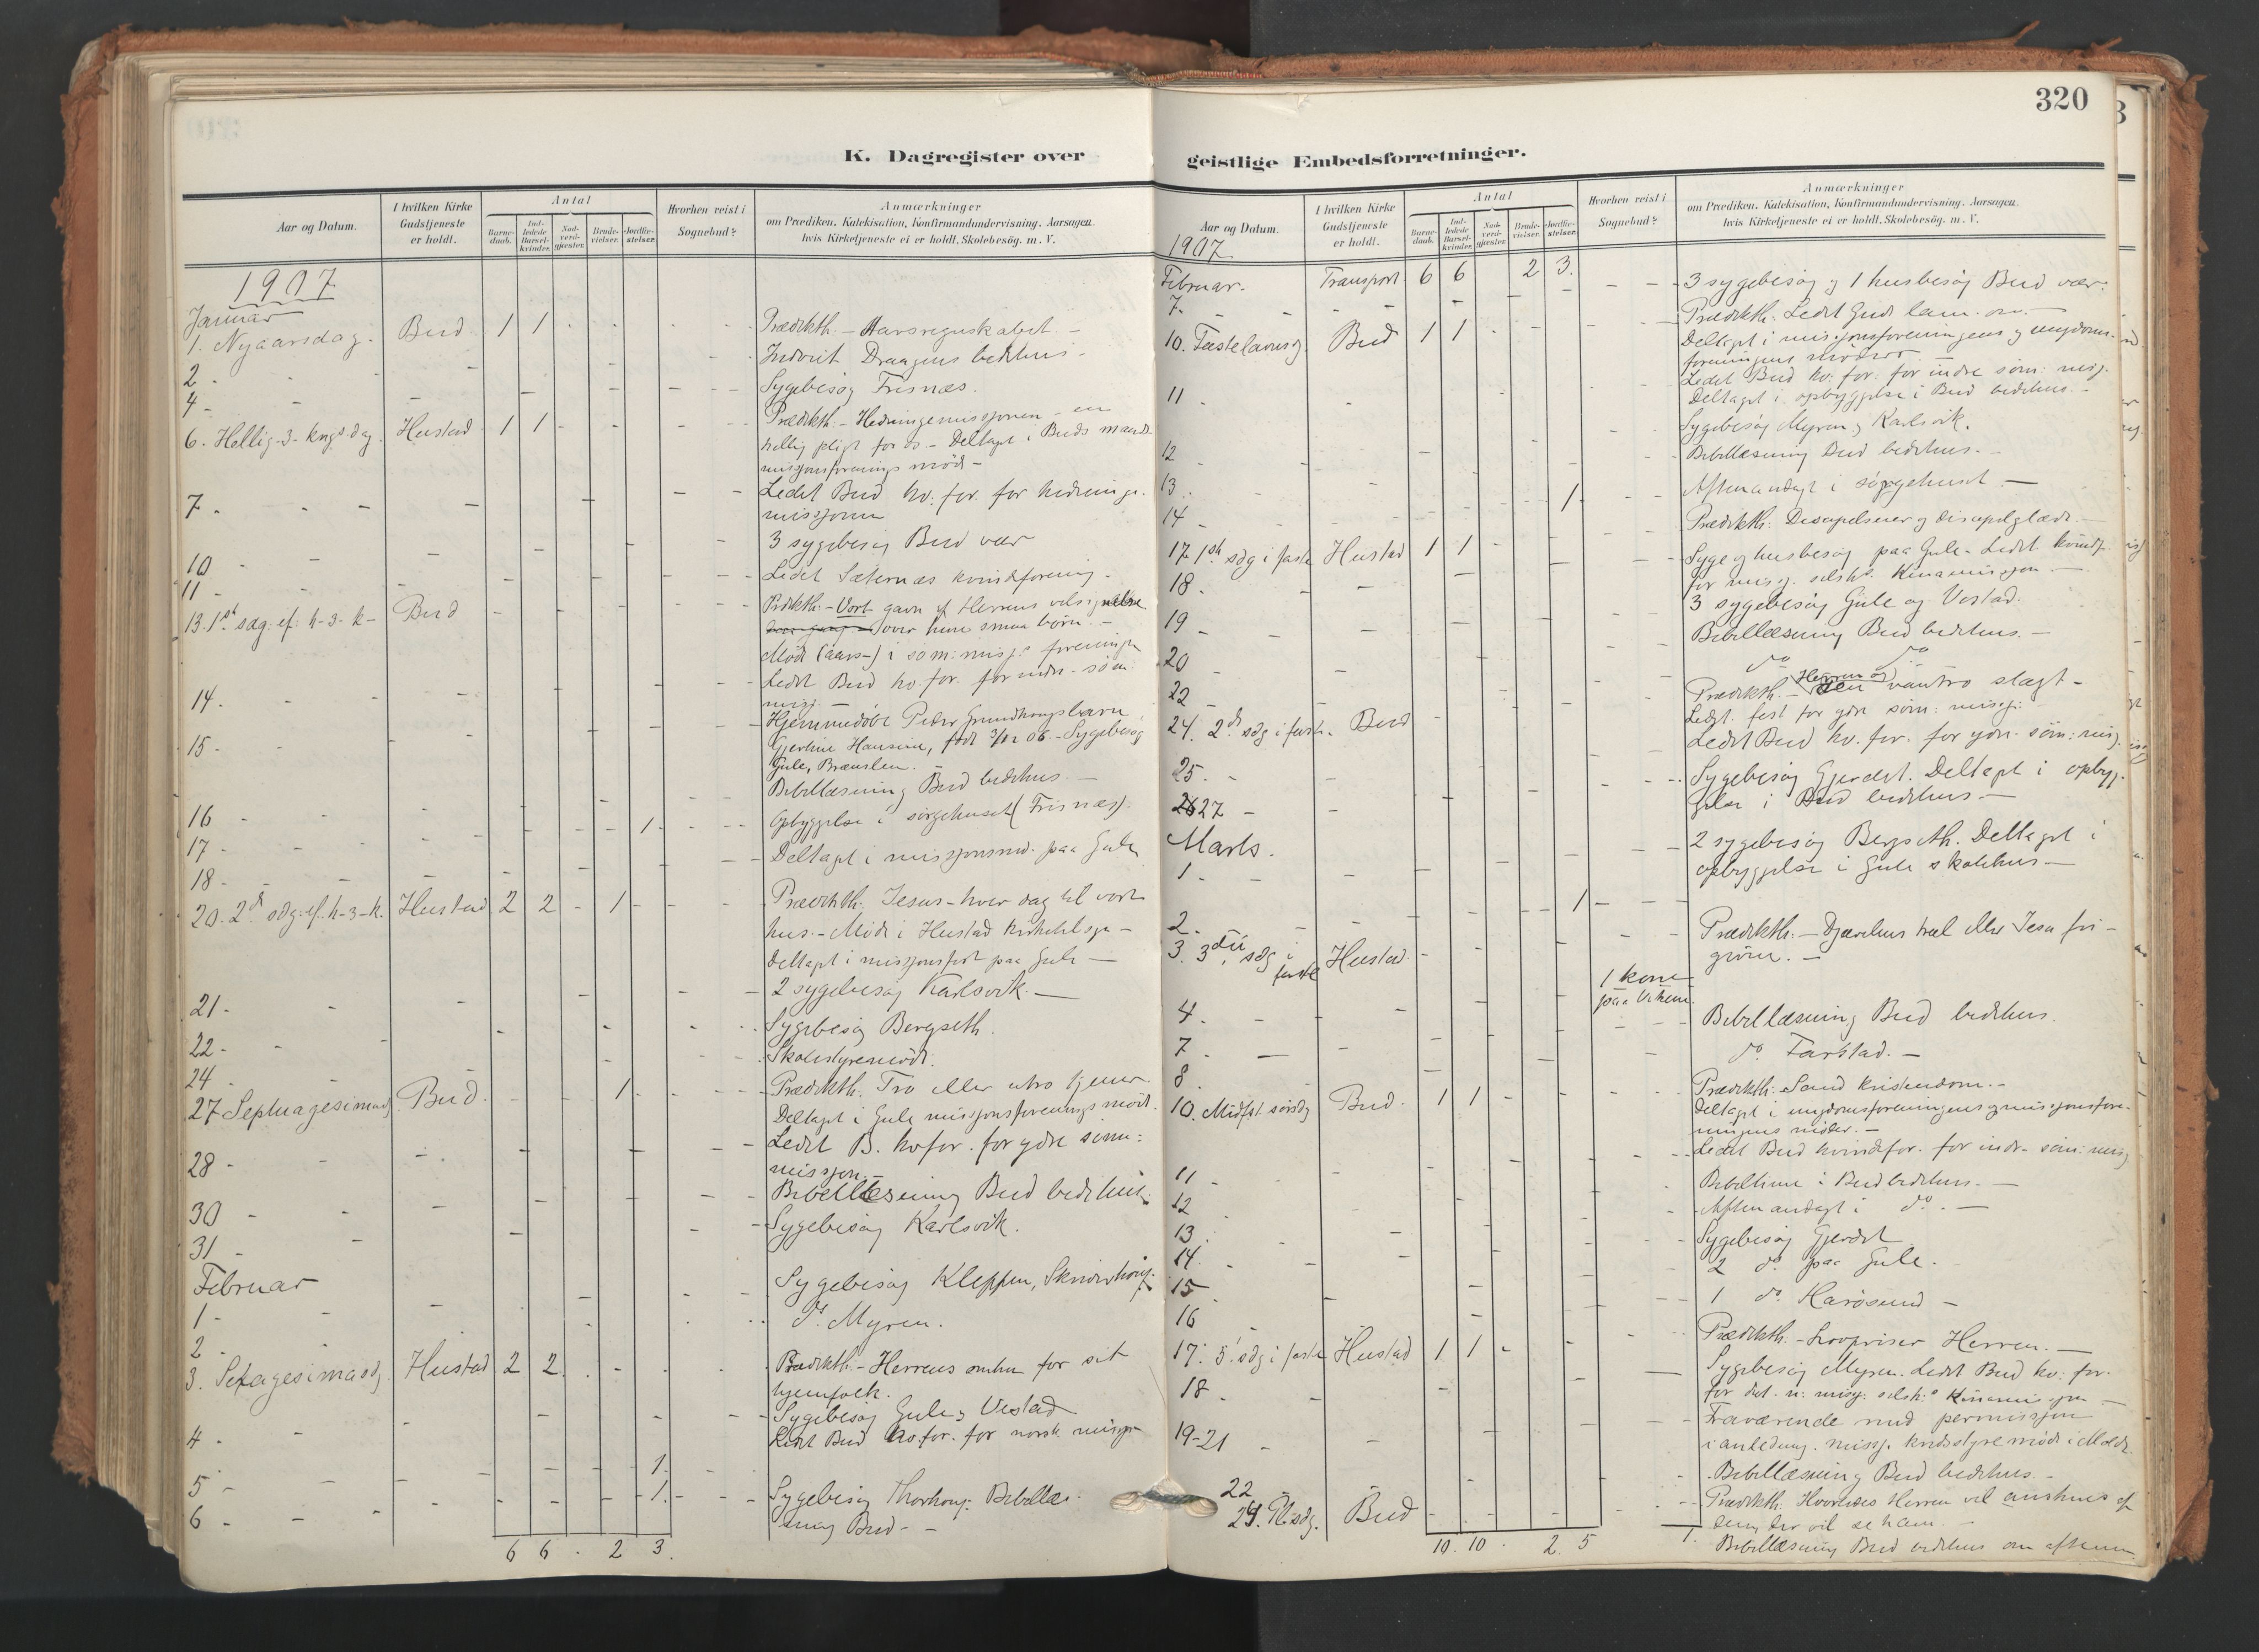 320
K. Dagregister over
Aar og Datum.
I hvilken Kirke Gudstjeneste er holdt.
Antal
Barne-daab.
Ind-ledede Barsel-kvinder.
Nad-verd-gjester.
Brude-vielser.
Jordfæ-stelser.
Hvorhen reist i Sognebud?
Anmærkninger
om Prædiken, Katekisation, Konfirmandundervisning, Aarsagen,
hvis Kirketjeneste ei er holdt, Skolebesög, m. V.
1907
Januar
1. Nyaarsdag. Bud 1 1 Prædikth. - Aarsregnskabet. -
2 - Indviet Draagens bedehus -
4 - Sygebesøg Frisnæs.
6. Hellig-3-kngs.dag. Hustad 1 1 Prædikth. - Hedningemissjonen - en
hellig pligt for os. - Deltaget i Buds mands
missjonsforenings møde -
7 - Ledet Bud kv. for. for hedninge-
missjonen
10 - 3 sygebesøg Bud vær
11 - Ledet Sæternæs kvindeforening.
13. 1ste søg. ef. h-3-k- Bud Prædikth. - Vort gavn af Herrens velsignelse
over sine smaa børn. -
Møde (aars-) i søm: misj: foreningen
14. Ledet Bud kv. for. for indre søm:
misj. -
15 - Hjemmedøbt Peder Grundhaugs barn
Gjertine Hansine, født 3/12 06. - Sygebesøg
Gule, Brænslen.
16 - Bibellæsning Bud bedehus. -
17 - 1 Opbyggelse i sørgehuset (Frisnæs).
18 - Deltaget i missjonsmø. paa Gule
20. 2d søg. ef. h-3-k. Hustad 2 2 - 1 Prædikth. Jesus - hver dag til vort
hus. - Møde i Hustad kirketilsyn -
Deltaget i missjonsfest paa Gule -
21 - 2 sygebesøg Karlsvik. -
22 - Sygebesøg Bergseth.
24 - Skolestyremøde.
27 Septuagesimasdg. Bud. 1 Prædikth. Tro eller utro tjener.
Deltaget i Gule missjonsforenings møde.
28 - Ledet B. kvfor. for ydre søm:
missjon. -
30 - Bibellæsning Bud bedehus.
31 - Sygebesøg Karlsvik.
Februar
1 - Sygebesøg Kleppen, Skriverhaug.
2 - do. Myren.
3. Sexagesimasdg. Hustad 2 2 Prædikth. - Herrens omhu for sit
tjenfolk.
Sygebesøg Gule og Vestad
4 - Ledet Bud kv. for. for norsk missjon
5 - 1
6 - 1 Sygebesøg Thorhaug. Bibellæs-
ning Bud -
6 6 . 2 3.
geistlige Embedsforretninger.
Aar og Datum.
I hvilken Kirke Gudstjeneste er holdt.
Antal
Barne-daab.
Ind-ledede Barsel-kvinder.
Nad-verd-gjester.
Brude-vielser.
Jordfæ-stelser.
Hvorhen reist i Sognebud?
Anmærkninger
om Prædiken, Katekisation, Konfirmandundervisning, Aarsagen,
hvis Kirketjeneste ei er holdt, Skolebesög, m. V.
1907
Februar. Transport. 6 6 2 3.
7 - 3 sygebesøg og 1 husbesøg Bud vær.
10. Fastelavnsdg. Bud 1 1 Prædikth. Ledet Guds lam.
Deltaget i missjonsforeningens og ungdoms-
foreningens møder
11 - Ledet Bud kv. for. for indre søm: misj.
Deltaget i opbyggelse i Bud bedehus. -
12 - Sygebesøg Myren og Karlsvik.
13 - Bibellæsning Bud bedehus. -
14 - 1 Aftenandagt i sørgehuset -
17 1ste sdg i faste Hustad 1 1 Prædikth. Disciplenes og disciplglæde -
18 - Syge og husbesøg paa Gule. Ledet kvindf.
for misj. selsk. Kinamissjon -
19 - 3 sygebesøg Gule og Vestad.
20 - Bibellæsning Bud bedehus. -
22 - do do
24. 2d sdg i faste. Bud Prædikth. - Herren og den vantro slægt -
Ledet fest for ydre søm: misj:
25. - Ledet Bud kv. for. for ydre søm: misj.
27 - Sygebesøg Gjerdet. Deltaget i opbyg-
gelse i Bud bedehus. -
Marts.
1 - 2 sygebesøg Bergseth. Deltaget i
opbyggelse i Gule skolehus -
2 - 1
3. 3die sdg i faste Hustad Prædikth. - Djævelens træl eller Jesu fri-
givne. -
4 - 1 kone paa Vikene.
7 - Bibellæsning Bud bedehus.
8 - do. Farstad. -
10. Midfst. sønsdg Bud 1 1 Prædikth. Sand kristendom. -
Deltaget i ungdomsforeningens og missjonsfore-
ningens møder. -
11 - Ledet Bud kvindefor. for indre søm: misj
12 - Bibeltime i Bud bedehus. -
13 - Aftenandagt i do. -
14 - Sygebesøg Gjerdet
15 - 2 do. paa Gule.
16 - 1 do. Harøsund -
17. 5. sdg i faste Hustad 1 1 Prædikth. - Lovpriser Herren. -
18 - Sygebesøg Myren. Ledet Bud kv. for.
for det n. misj. selsk:s Kinamissjon -
19-21 - Fraværende med permissjon
i anledning misj. kredsstyremøde i Molde
22 Bibellæsning Bud bedehus. -
24. Pl.sdg. Bud Prædikth. Hvorledes Herren vil ansknes af
dem der vil se ham. -
Bibellæsning Bud bedehus om aftenen
10. 10 . 2. 5 1.